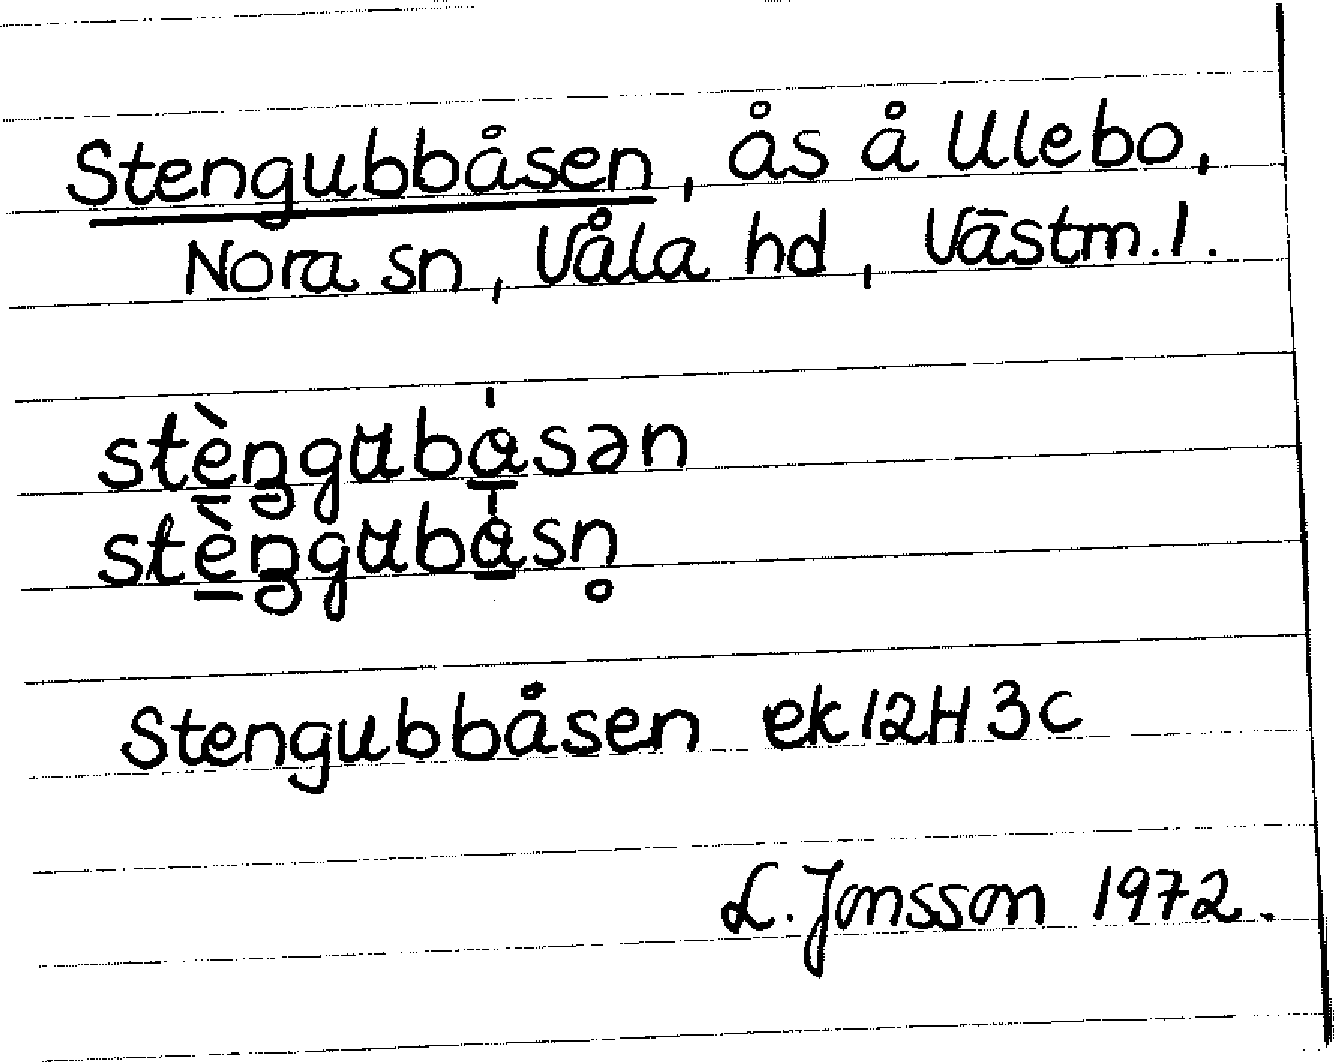 Stengubbåsen, ås å Ulebo,
Nora sn, Våla hd, Västm. l.
stè̠ngubɑ̠́sən
stè̠ngubɑ̠́sn̥
Stengubbåsen ek 12H 3c
L. Jonsson 1972.